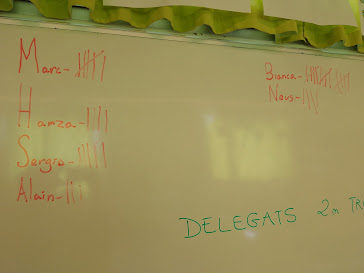 Marc-
Hamza-
Sergio-
Alain-
Bianca-
Neus-
DELEGATS 2n